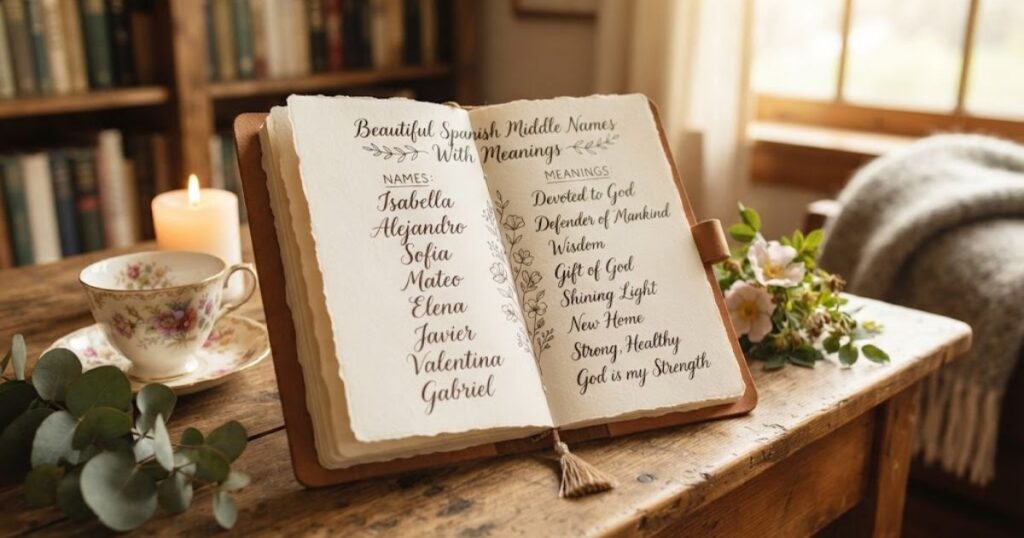 Beautiful Spanish Middle Names
With Meanings
NAMES:
Isabella
Alejandro
Sofia
Mateo
Elena
Javier
Valentina
Gabriel
MEANINGS
Devoted to God
Defender of Mankind
Wisdom
Gift of God
Shining Light
New Home
Strong, Healthy
God is my Strength